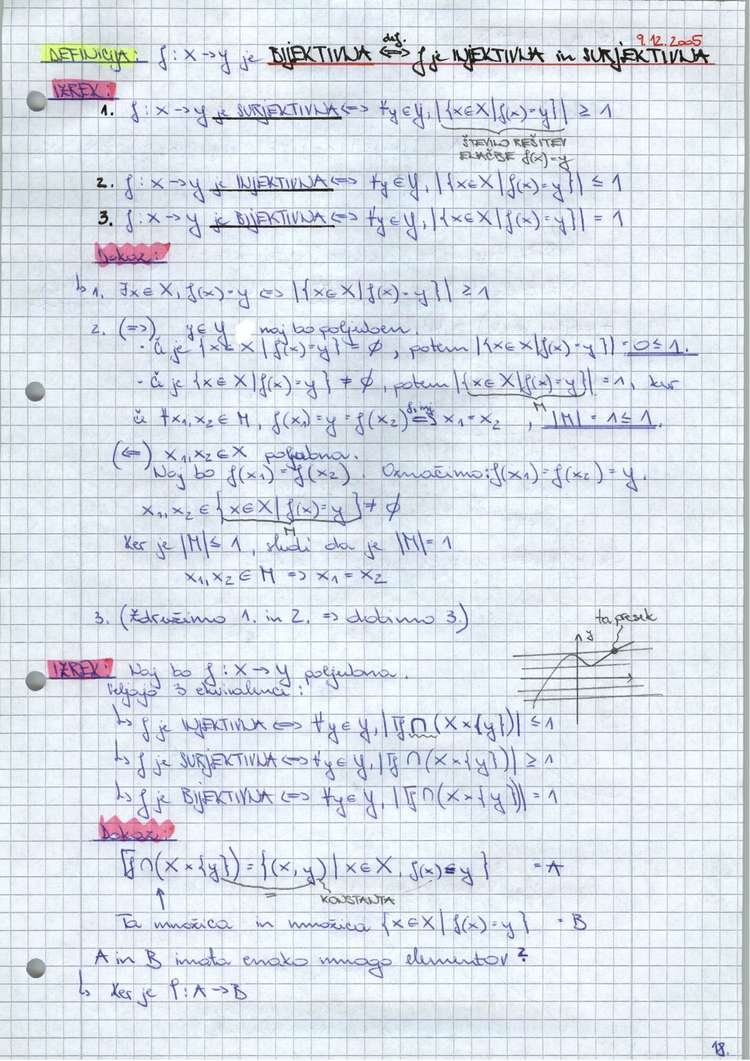 9.12.2005
DEFINICIJA: f: X → Y je BIJEKTIVNA ⇔ def. f je INJEKTIVNA in SURJEKTIVNA
IZREK:
1. f: X → Y je SURJEKTIVNA ⇔ ∀y ∈ Y, |{x ∈ X | f(x) = y}| ≥ 1
ŠTEVILO REŠITEV
ENAČBE f(x) = y
2. f: X → Y je INJEKTIVNA ⇔ ∀y ∈ Y, |{x ∈ X | f(x) = y}| ≤ 1
3. f: X → Y je BIJEKTIVNA ⇔ ∀y ∈ Y, |{x ∈ X | f(x) = y}| = 1
Dokaz:
↳ 1. ∃x ∈ X, f(x) = y ⇔ |{x ∈ X | f(x) = y}| ≥ 1
2. (⇒) y ∈ Y naj bo poljuben.
· Če je {x ∈ X | f(x) = y} = ∅, potem |{x ∈ X | f(x) = y}| = 0 ≤ 1.
· Če je {x ∈ X | f(x) = y} ≠ ∅, potem |{x ∈ X | f(x) = y}| = 1, ker
M
če ∀x₁, x₂ ∈ M, f(x₁) = y = f(x₂) ⇒ f inj. x₁ = x₂, |M| = 1 ≤ 1.
(⇐) x₁, x₂ ∈ X poljubna.
Naj bo f(x₁) = f(x₂). Označimo: f(x₁) = f(x₂) = y.
x₁, x₂ ∈ {x ∈ X | f(x) = y} ≠ ∅
M
Ker je |M| ≤ 1, sledi da je |M| = 1
x₁, x₂ ∈ M ⇒ x₁ = x₂
3. (Združimo 1. in 2. ⇒ dobimo 3.)
ta presek
f
IZREK: Naj bo f: X → Y poljubna.
Veljajo 3 ekvivalence:
↳ f je INJEKTIVNA ⇔ ∀y ∈ Y, |Γf ∩ (X × {y})| ≤ 1
↳ f je SURJEKTIVNA ⇔ ∀y ∈ Y, |Γf ∩ (X × {y})| ≥ 1
↳ f je BIJEKTIVNA ⇔ ∀y ∈ Y, |Γf ∩ (X × {y})| = 1
Dokaz:
Γf ∩ (X × {y}) = {(x, y) | x ∈ X, f(x) = y} = A
=
KONSTANTA
↑
Ta množica in množica {x ∈ X | f(x) = y} = B
A in B imata enako mnogo elementov?
↳ Ker je P: A → B
18.